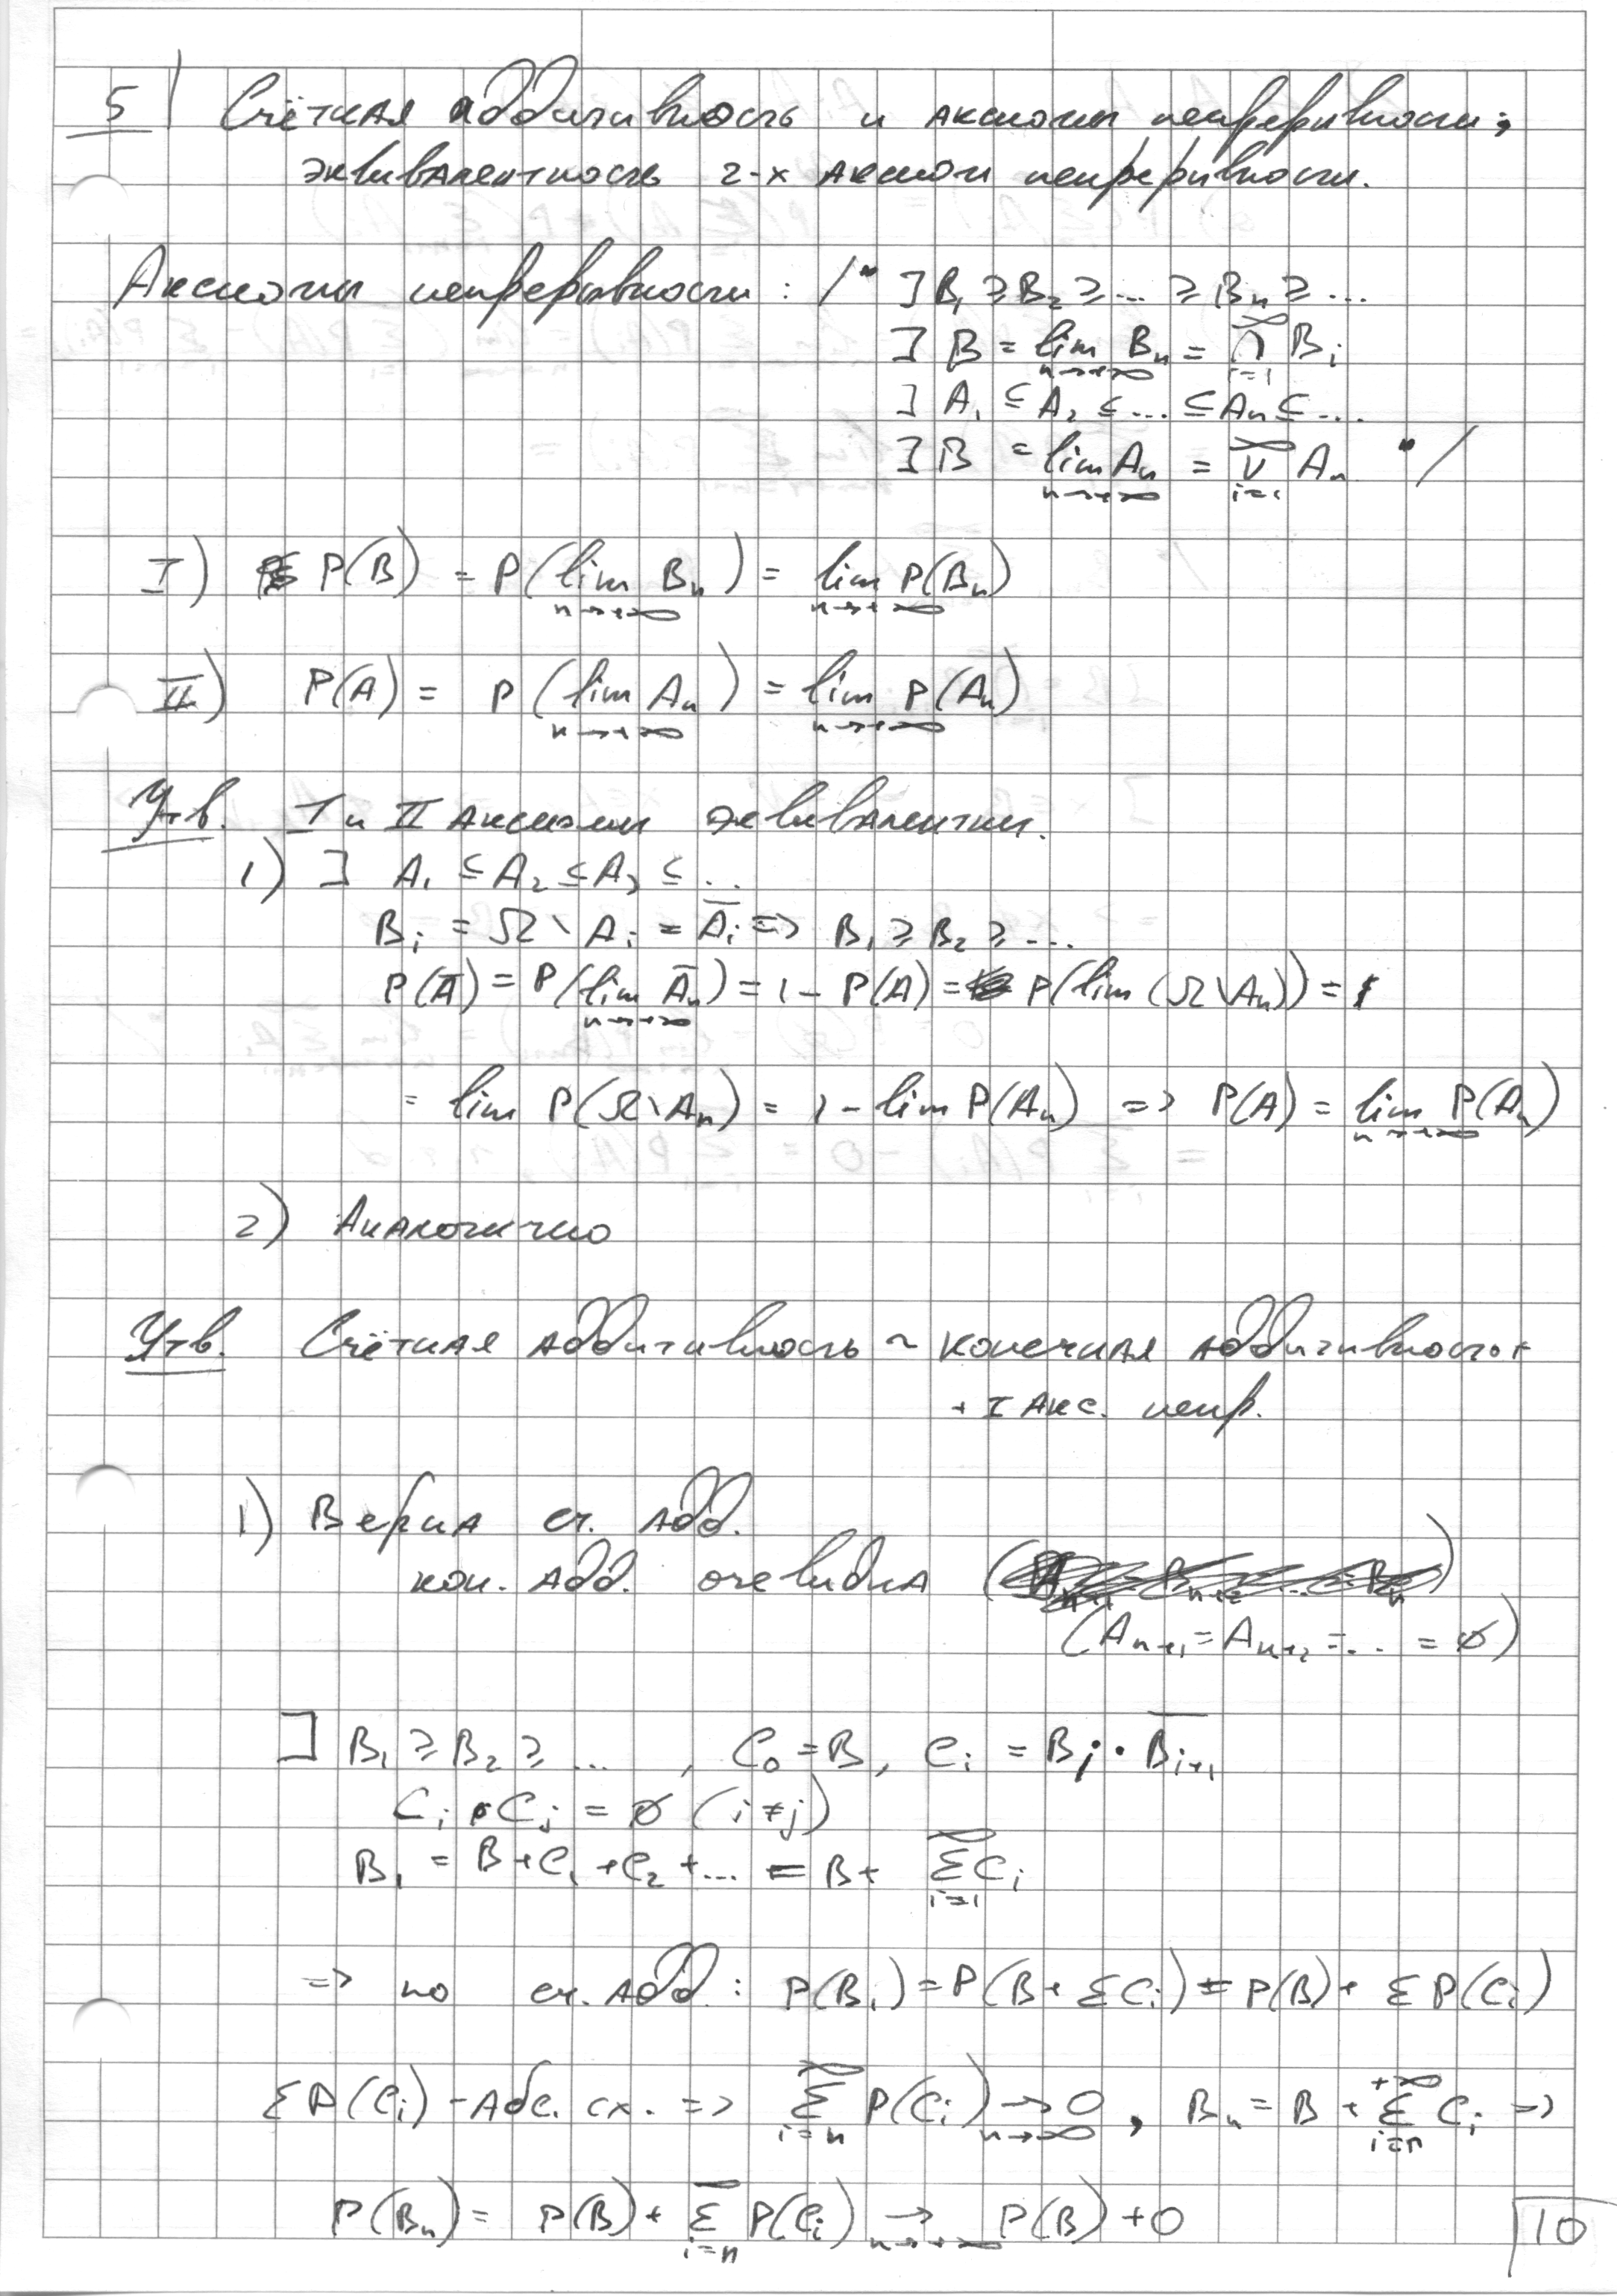 5 | Счётная аддитивность и аксиомы непрерывности;
эквивалентность 2-х аксиом непрерывности.
Аксиомы непрерывности: /" ] B₁ ⊇ B₂ ⊇ ... ⊇ Bₙ ⊇ ...
] B = lim_{n→+∞} Bₙ = ∩_{i=1}^{∞} Bᵢ
] A₁ ⊆ A₂ ⊆ ... ⊆ Aₙ ⊆ ...
] B = lim_{n→+∞} Aₙ = ∪_{i=1}^{∞} Aₙ "/
I) P(B) = P(lim_{n→+∞} Bₙ) = lim_{n→+∞} P(Bₙ)
II) P(A) = P(lim_{n→+∞} Aₙ) = lim_{n→+∞} P(Aₙ)
Утв. I и II аксиомы эквивалентны.
1) ] A₁ ⊆ A₂ ⊆ A₃ ⊆ ...
Bᵢ = Ω \ Aᵢ = A̅ᵢ => B₁ ⊇ B₂ ⊇ ...
P(A̅) = P(lim_{n→+∞} A̅ₙ) = 1 - P(A) = P(lim (Ω \ Aₙ)) =
= lim P(Ω \ Aₙ) = 1 - lim P(Aₙ) => P(A) = lim_{n→+∞} P(Aₙ)
2) Аналогично
Утв. Счётная аддитивность ~ конечная аддитивность +
+ I акс. непр.
1) Верна сч. адд.
кон. адд. очевидна
(Aₙ₊₁ = Aₙ₊₂ = ... = ∅)
] B₁ ⊇ B₂ ⊇ ... , C₀ = B, Cᵢ = Bᵢ · B̅ᵢ₊₁
Cᵢ · Cⱼ = ∅ (i ≠ j)
B₁ = B + C₁ + C₂ + ... = B + Σ_{i=1}^{∞} Cᵢ
=> по сч. адд.: P(B₁) = P(B + ΣCᵢ) = P(B) + Σ P(Cᵢ)
Σ P(Cᵢ) - абс. сх. => Σ_{i=n}^{∞} P(Cᵢ) →_{n→∞} 0, Bₙ = B + Σ_{i=n}^{+∞} Cᵢ =>
P(Bₙ) = P(B) + Σ_{i=n}^{∞} P(Cᵢ) →_{n→+∞} P(B) + 0
10